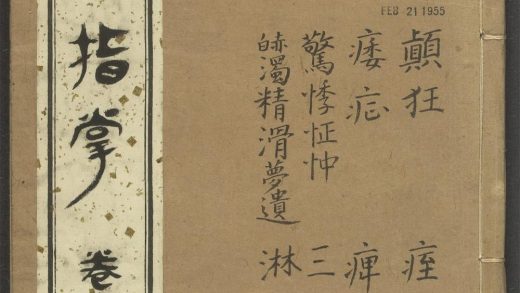 FEB 21 1955
顛狂 痓
痿 痺
驚悸怔忡 三
赤白濁精滑夢遺 淋
指掌 卷